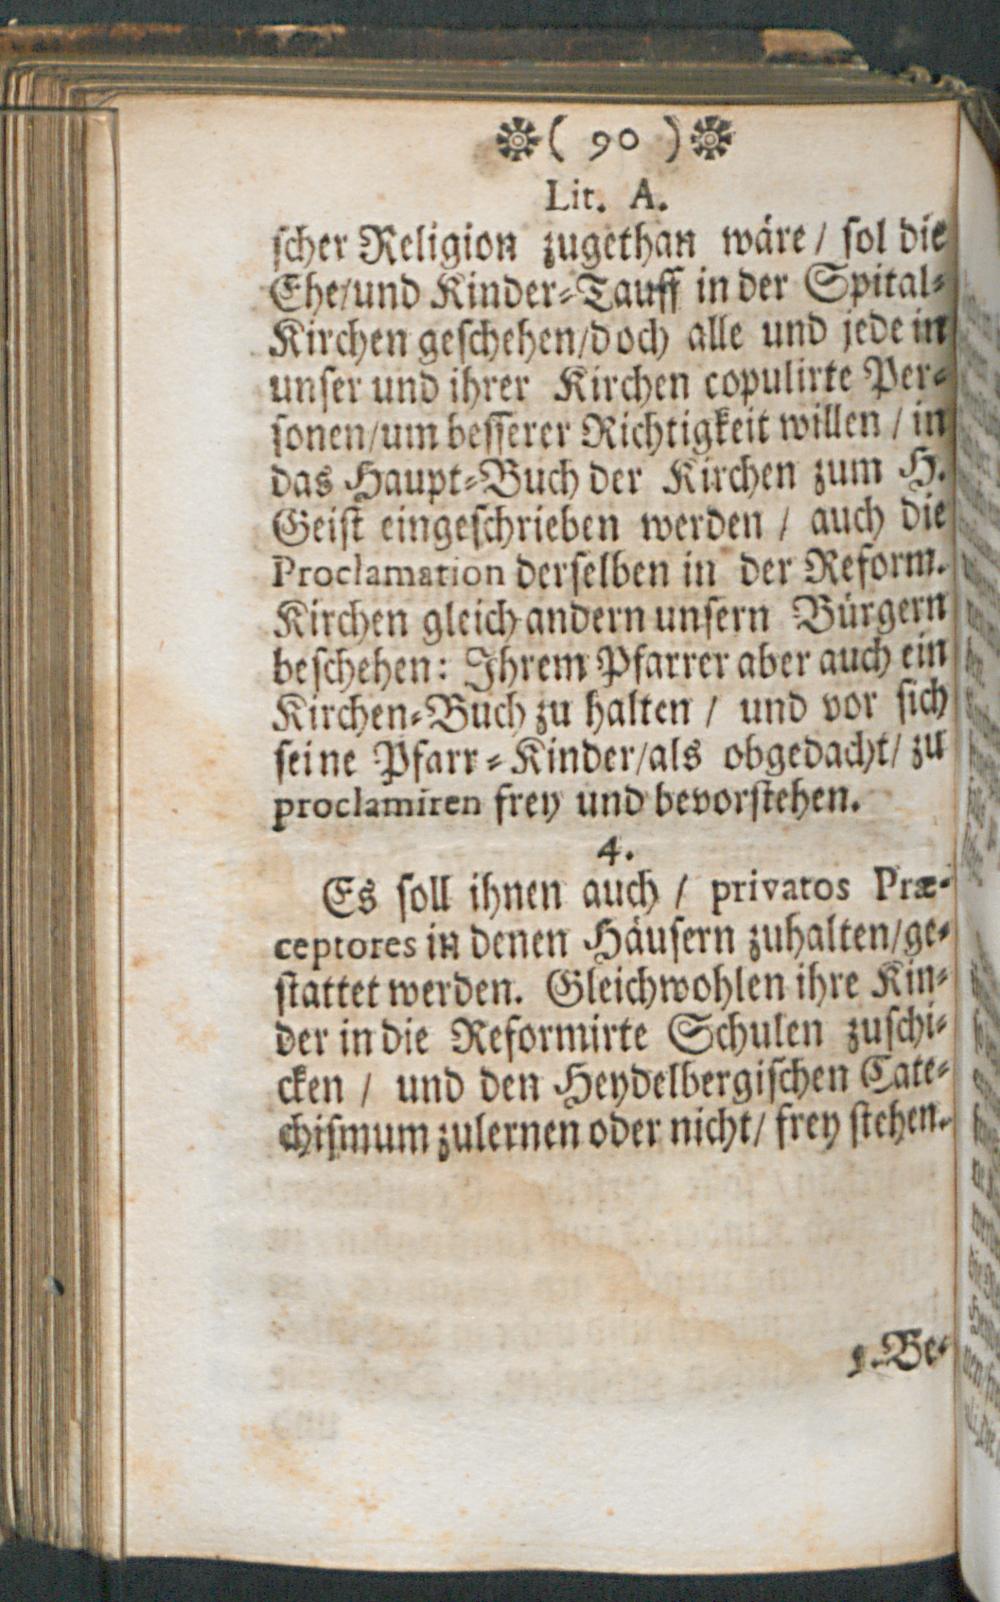 ( 90 )
Lit. A.
scher Religion zugethan wäre / sol die
Ehe/und Kinder-Tauff in der Spital-
Kirchen geschehen/doch alle und jede in
unser und ihrer Kirchen copulirte Per-
sonen/um besserer Richtigkeit willen / in
das Haupt-Buch der Kirchen zum H.
Geist eingeschrieben werden / auch die
Proclamation derselben in der Reform.
Kirchen gleich andern unsern Bürgern
beschehen: Ihrem Pfarrer aber auch ein
Kirchen-Buch zu halten / und vor sich
seine Pfarr-Kinder/als obgedacht/ zu
proclamiren frey und bevorstehen.
4.
Es soll ihnen auch / privatos Præ-
ceptores in denen Häusern zuhalten/ge-
stattet werden. Gleichwohlen ihre Kin-
der in die Reformirte Schulen zuschi-
cken / und den Heydelbergischen Cate-
chismum zulernen oder nicht/ frey stehen.
Be-